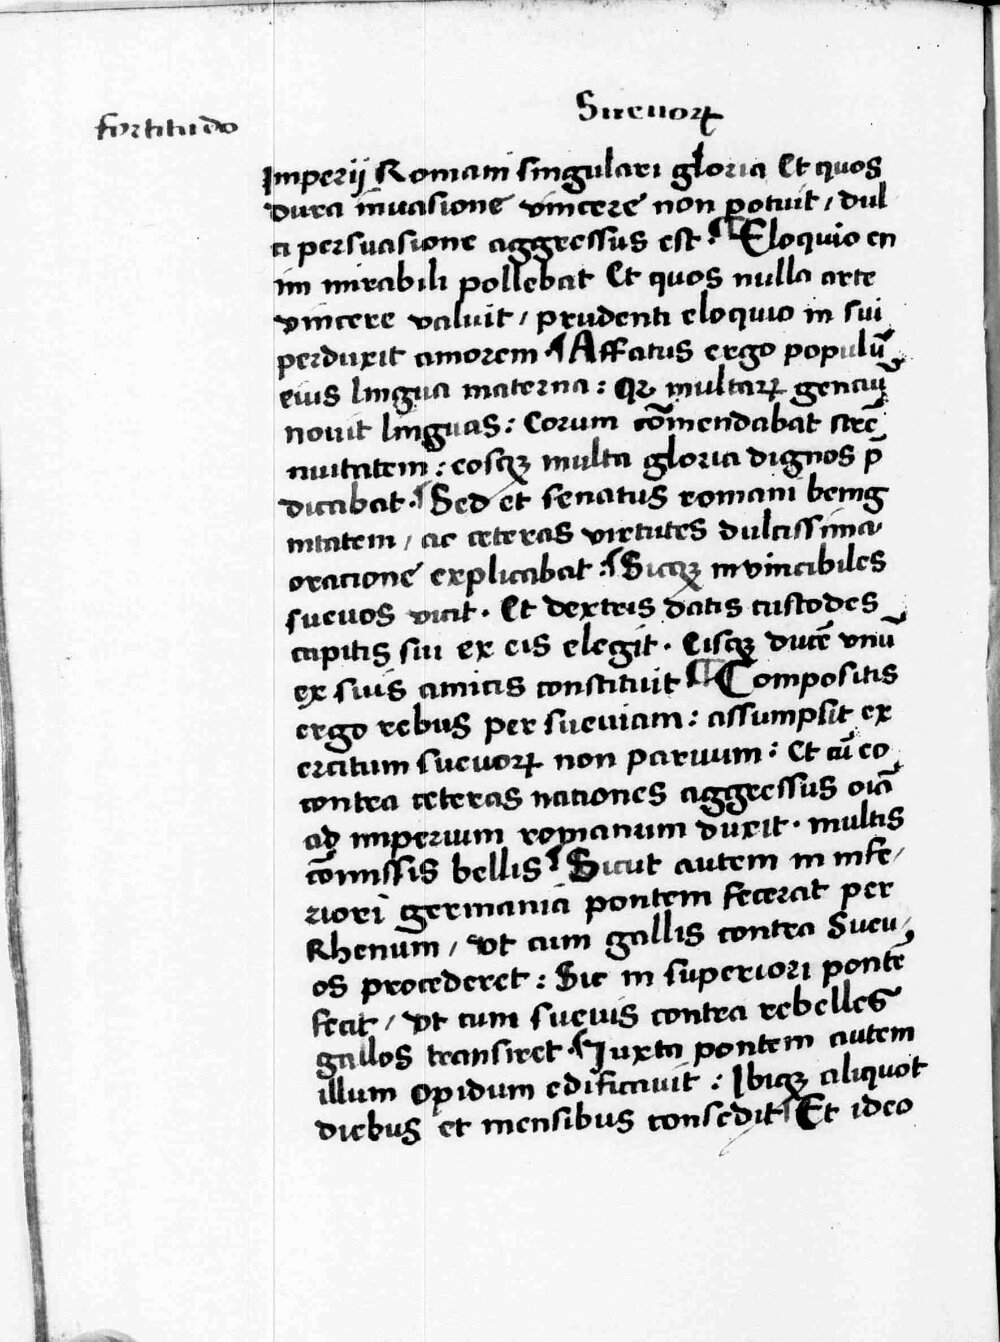 fortitudo
Sueuoꝝ
Imperij Romani singulari gloria Et quos
dura inuasione vincere non potuit / dul
ci persuasione aggressus est . ¶ Eloquio en
im mirabili pollebat Et quos nulla arte
vincere valuit / prudenti eloquio in sui
perduxit amorem . ¶ Affatus ergo populū
eius lingua materna : Qꝛ multaꝝ genciū
nouit linguas : Eorum cōmendabat stre
nuitatem : eosqꝫ multa gloria dignos p̄
dicabat . ¶ Sed et senatus romani benig
nitatem / ac ceteras virtutes dulcissima
oracione explicabat : ¶ Sicqꝫ invincibiles
sueuos vicit . Et dextris datis custodes
capitis sui ex eis elegit . Eisqꝫ ducē vnū
ex suis amicis constituit ¶ Compositis
ergo rebus per sueuiam : assumpsit ex
ercitum sueuoꝝ non paruum : Et cū eo
contra ceteras nationes aggressus oīa
ad imperium romanum duxit . multis
cōmissis bellis ¶ Sicut autem in infe/
riori germania pontem fecerat per
Rhenum / vt cum gallis contra Sueu/
os procederet : Sic in superiori pontē
fecit / vt cum sueuis contra rebelles
gallos transiret . ¶ Juxta pontem autem
illum opidum edificauit : Ibiqꝫ aliquot
diebus et mensibus consedit ¶ Et ideo